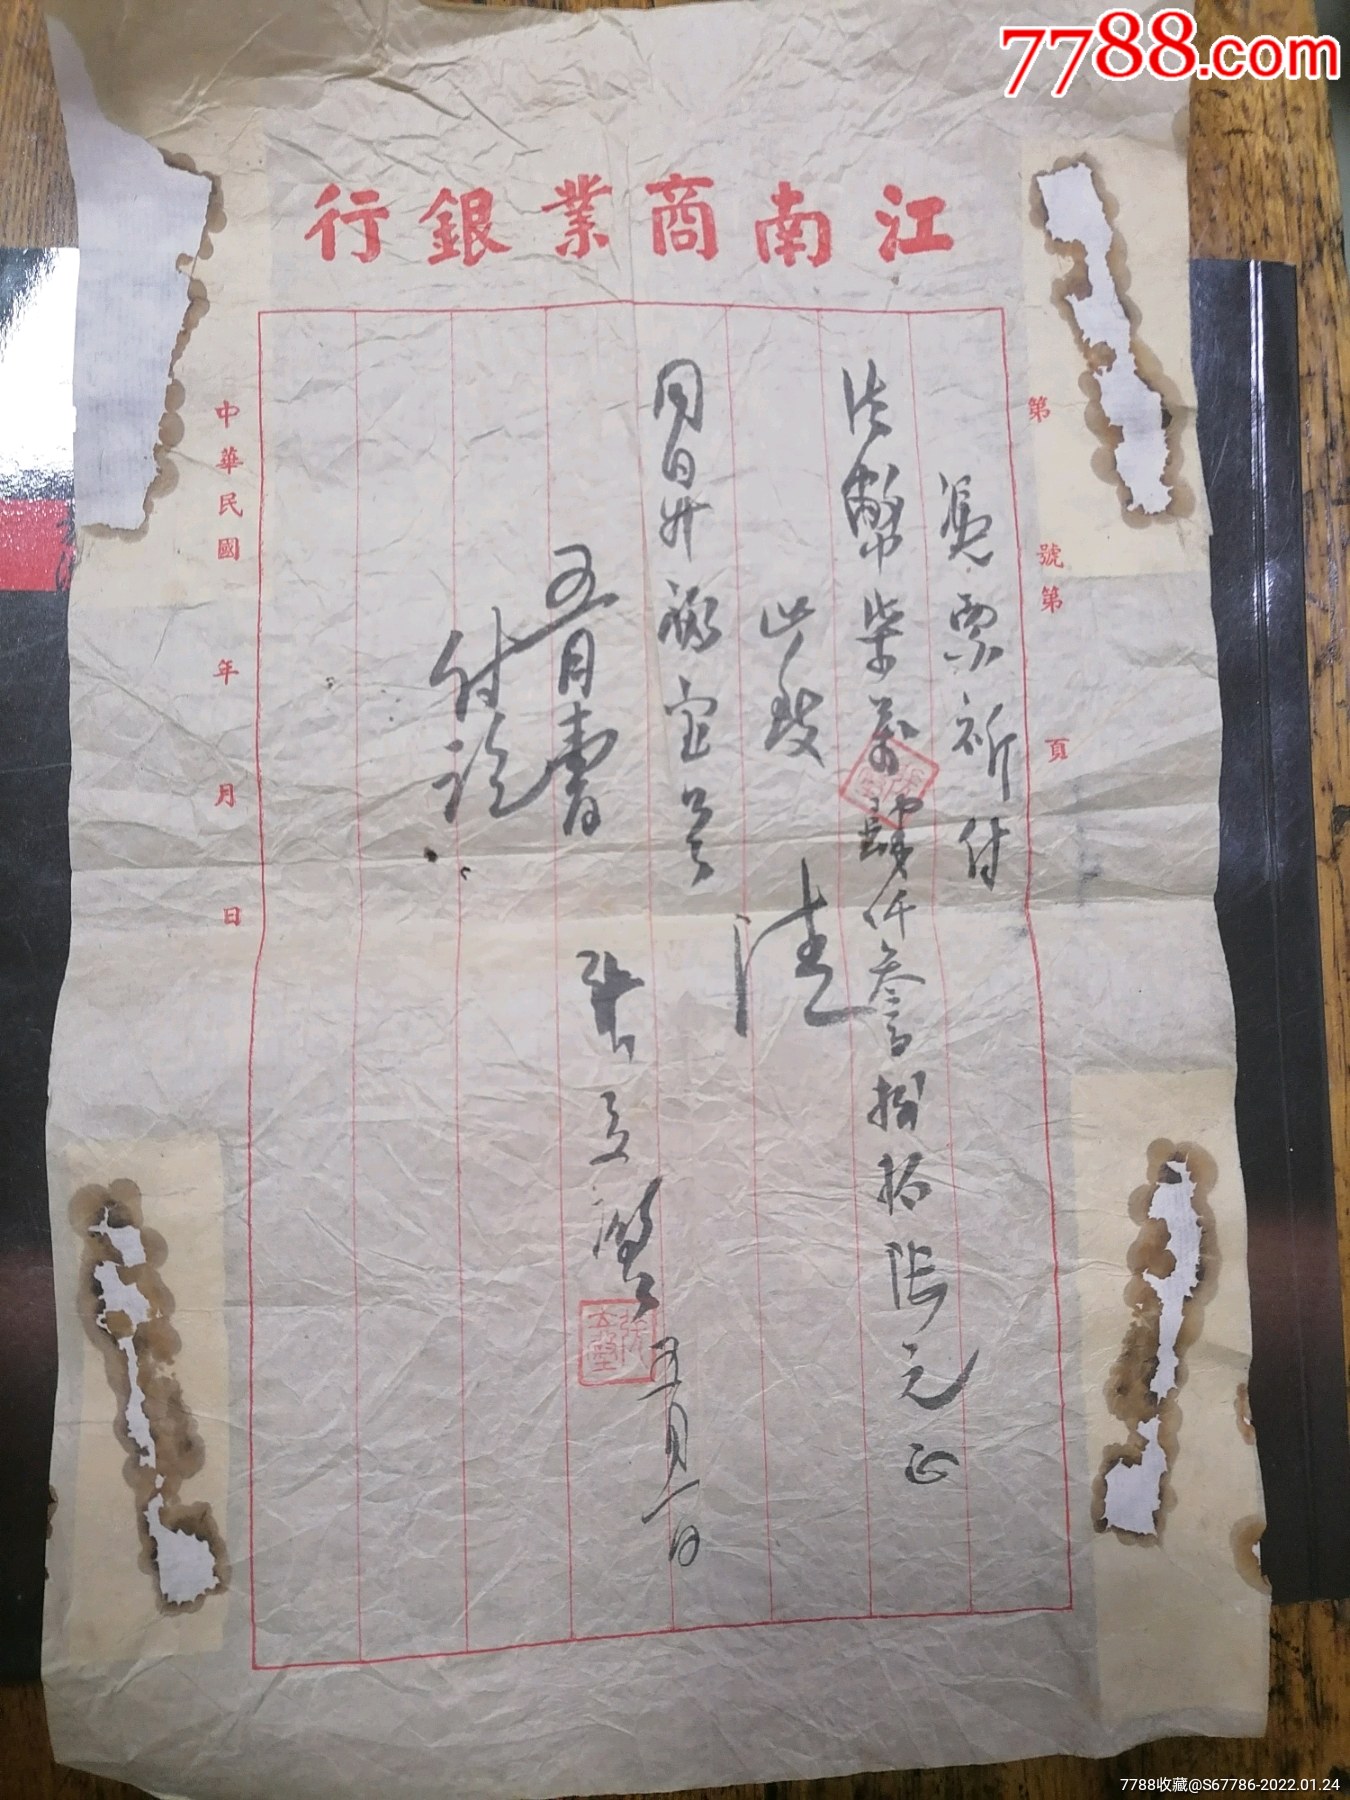 7788.com
江南商業銀行
第　號第　頁
憑票祈付
法幣柒萬肆仟叁百捌拾陸元正
此致
陸
同昇祿宝号
五月一日
五月壹日
付訖
中華民國　年　月　日
7788收藏@S67786-2022.01.24